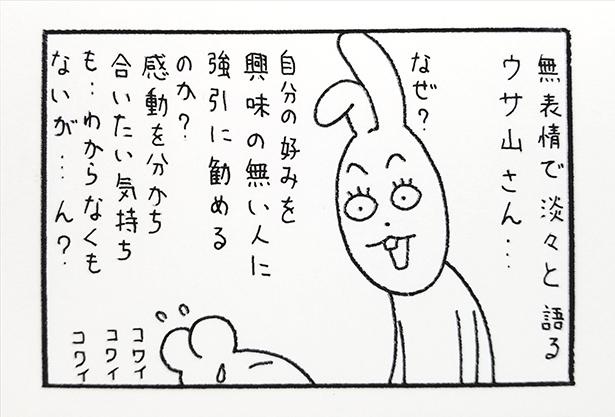 無表情で淡々と語る
ウサ山さん…
なぜ?
自分の好みを
興味の無い人に
強引に勧める
のか?
感動を分かち
合いたい気持ち
も…わからなくも
ないが…ん?
コワイ
コワイ
コワイ